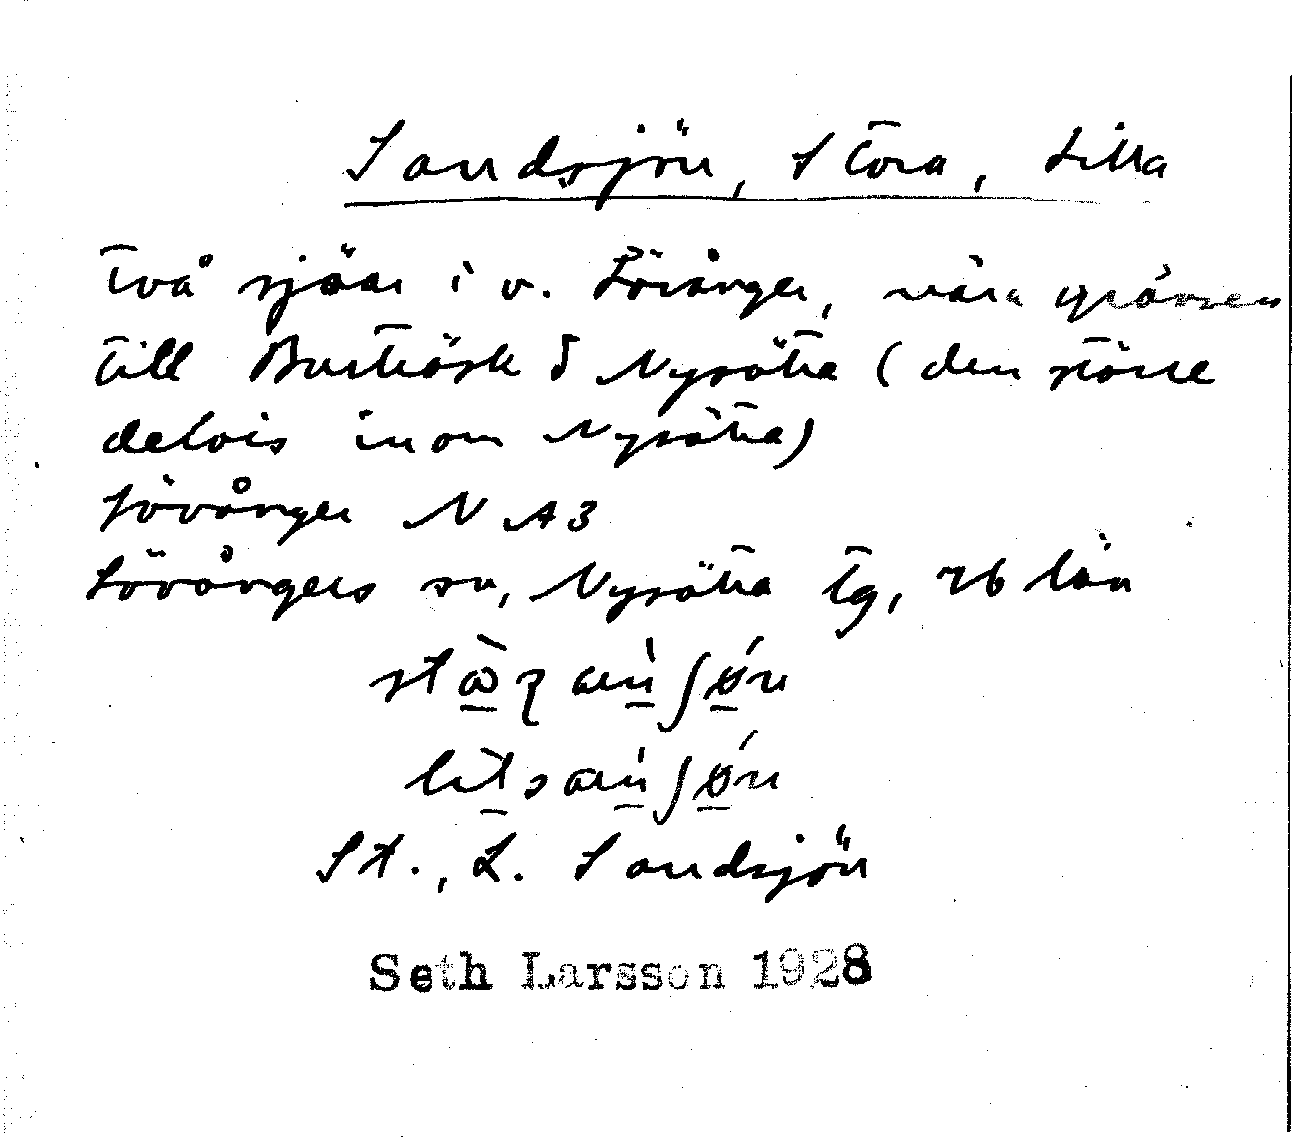 Sandsjön, Stora, Lilla
två sjöar i v. Lövånger, nära gränsen
till Burträsk o Nysätra (den större
delvis inom Nysätra)
Lövånger NA3
Lövångers sn, Nysätra tg, Vb län
St., L. Sandsjön
Seth Larsson 1928